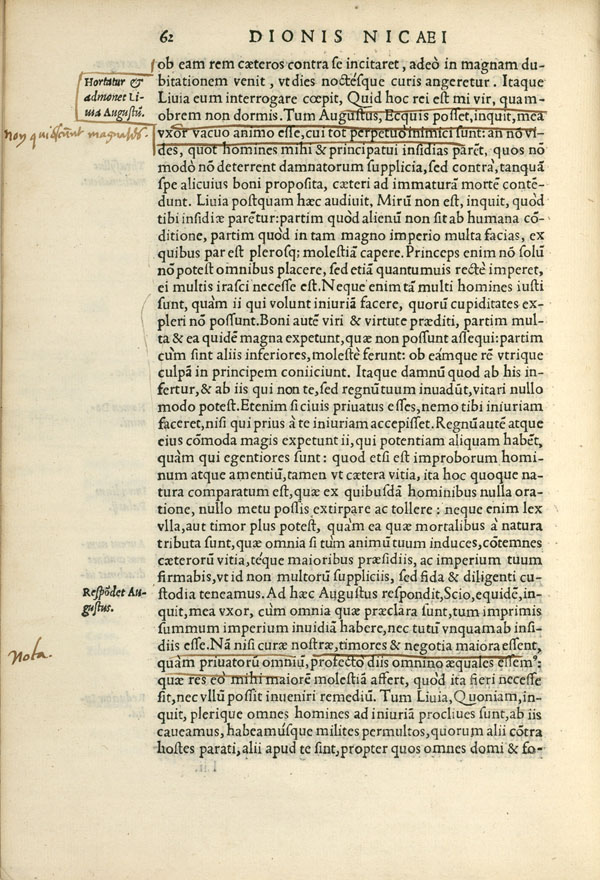 62 DIONIS NICAEI
ob eam rem cæteros contra se incitaret, adeò in magnam du-
bitationem venit, vt dies noctésque curis angeretur. Itaque
Liuia eum interrogare cœpit, Quid hoc rei est mi vir, quam-
obrem non dormis. Tum Augustus, Ecquis posset, inquit, mea
vxor vacuo animo esse, cui tot perpetuò inimici sunt: an nō vi-
des, quot homines mihi & principatui insidias parēt, quos nō
modò nō deterrent damnatorum supplicia, sed contrà, tanquā
spe alicuius boni proposita, cæteri ad immaturā mortē contē-
dunt. Liuia postquam hæc audiuit, Mirū non est, inquit, quòd
tibi insidiæ parētur: partim quòd alienū non sit ab humana cō-
ditione, partim quòd in tam magno imperio multa facias, ex
quibus par est plerosq; molestiā capere. Princeps enim nō solū
nō potest omnibus placere, sed etiā quantumuis rectè imperet,
ei multis irasci necesse est. Neque enim tā multi homines iusti
sunt, quàm ii qui volunt iniuriā facere, quorū cupiditates ex-
pleri nō possunt. Boni autē viri & virtute præditi, partim mul-
ta & ea quidē magna expetunt, quæ non possunt assequi: partim
cùm sint aliis inferiores, molestè ferunt: ob eámque rē vtrique
culpā in principem coniiciunt. Itaque damnū quod ab his in-
fertur, & ab iis qui non te, sed regnū tuum inuadūt, vitari nullo
modo potest. Etenim si ciuis priuatus esses, nemo tibi iniuriam
faceret, nisi qui prius à te iniuriam accepisset. Regnū autē atque
eius cōmoda magis expetunt ii, qui potentiam aliquam habēt,
quàm qui egentiores sunt: quod etsi est improborum homi-
num atque amentiū, tamen vt cætera vitia, ita hoc quoque na-
tura comparatum est, quæ ex quibusdā hominibus nulla ora-
tione, nullo metu possis extirpare ac tollere: neque enim lex
vlla, aut timor plus potest, quàm ea quæ mortalibus à natura
tributa sunt, quæ omnia si tùm animū tuum induces, cōtemnes
cæterorū vitia, téque maioribus præsidiis, ac imperium tuum
firmabis, vt id non multorū suppliciis, sed fida & diligenti cu-
stodia teneamus. Ad hæc Augustus respondit, Scio, equidē, in-
quit, mea vxor, cùm omnia quæ præclara sunt, tum imprimis
summum imperium inuidiā habere, nec tutū vnquamab insi-
diis esse. Nā nisi curæ nostræ, timores & negotia maiora essent,
quàm priuatorū omniū, profectò diis omnino æquales essemꝰ:
quæ res eo mihi maiorē molestiā affert, quòd ita fieri necesse
sit, nec vllū possit inueniri remediū. Tum Liuia, Quoniam, in-
quit, plerique omnes homines ad iniuriā procliues sunt, ab iis
caueamus, habeamúsque milites permultos, quorum alii cōtra
hostes parati, alii apud te sint, propter quos omnes domi & fo-
Hortatur &
admonet Li-
uia Augustū.
Respōdet Au-
gustus.
Nota.